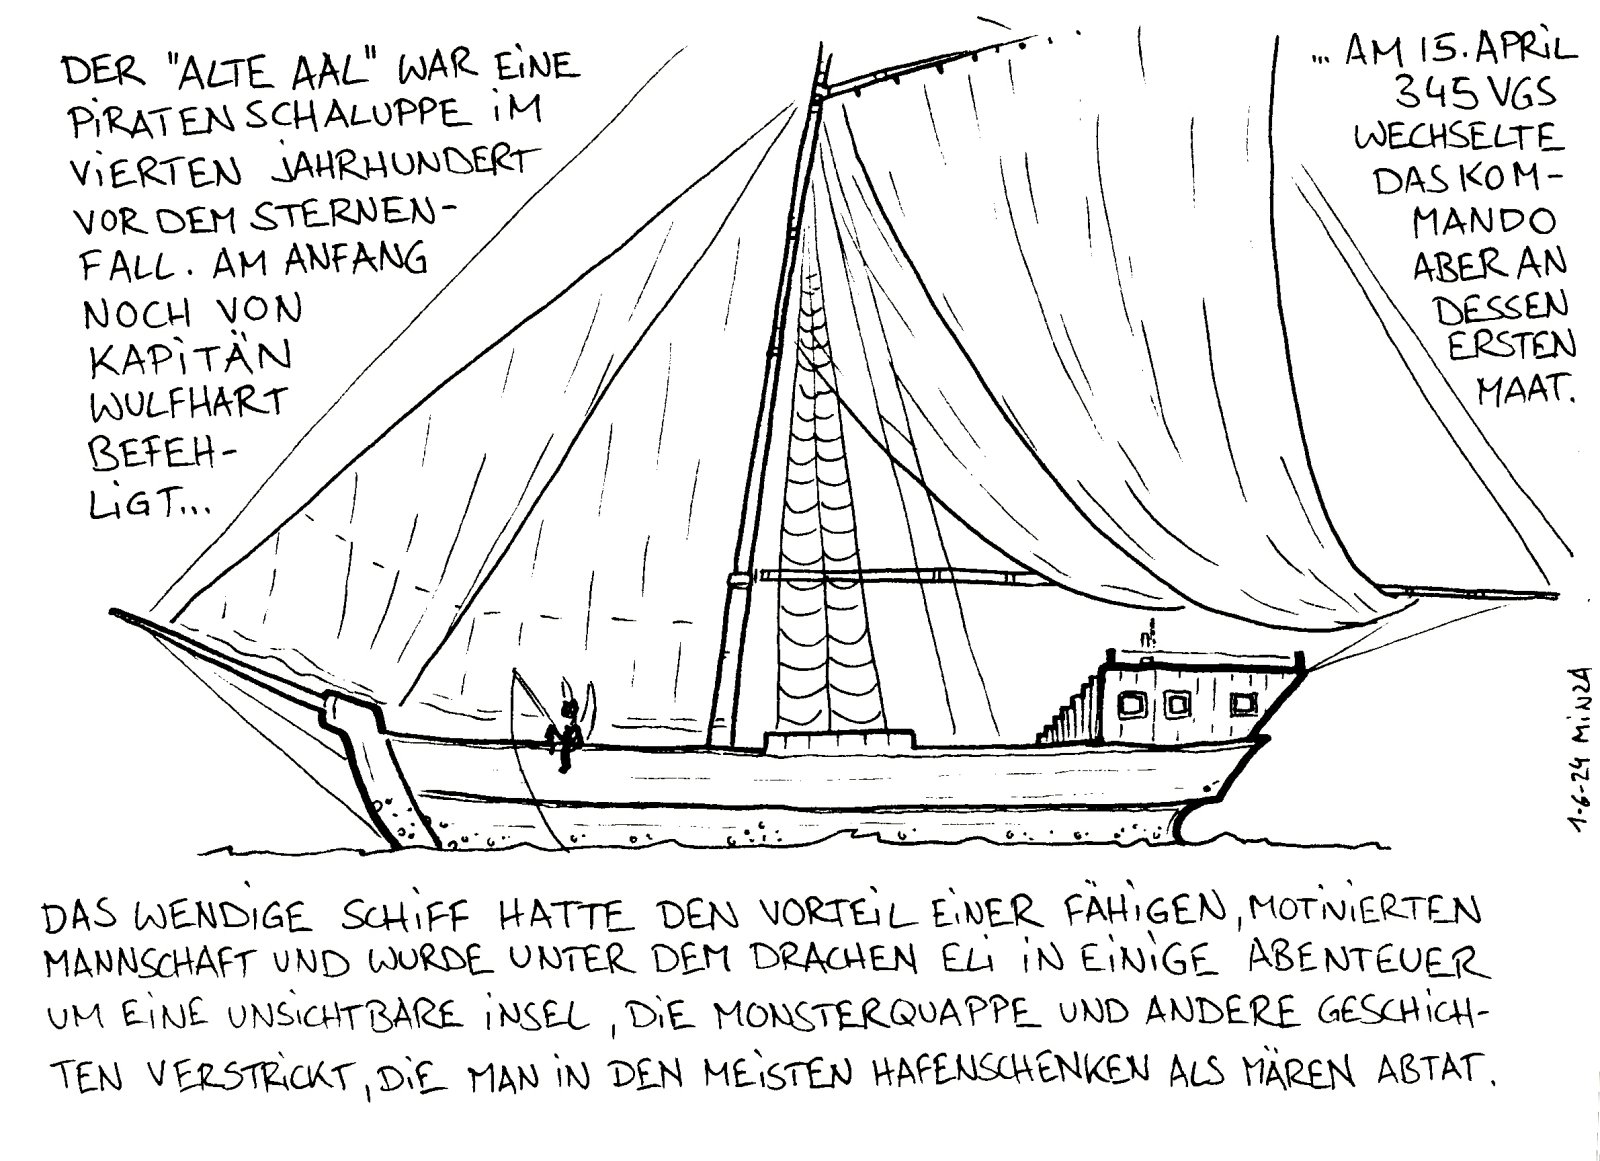 DER "ALTE AAL" WAR EINE
PIRATENSCHALUPPE IM
VIERTEN JAHRHUNDERT
VOR DEM STERNEN-
FALL. AM ANFANG
NOCH VON
KAPITÄN
WULFHART
BEFEH-
LIGT...
... AM 15. APRIL
345 VGS
WECHSELTE
DAS KOM-
MANDO
ABER AN
DESSEN
ERSTEN
MAAT.
1-6-24 MINZA
DAS WENDIGE SCHIFF HATTE DEN VORTEIL EINER FÄHIGEN, MOTIVIERTEN
MANNSCHAFT UND WURDE UNTER DEM DRACHEN ELI IN EINIGE ABENTEUER
UM EINE UNSICHTBARE INSEL, DIE MONSTERQUAPPE UND ANDERE GESCHICH-
TEN VERSTRICKT, DIE MAN IN DEN MEISTEN HAFENSCHENKEN ALS MÄREN ABTAT.